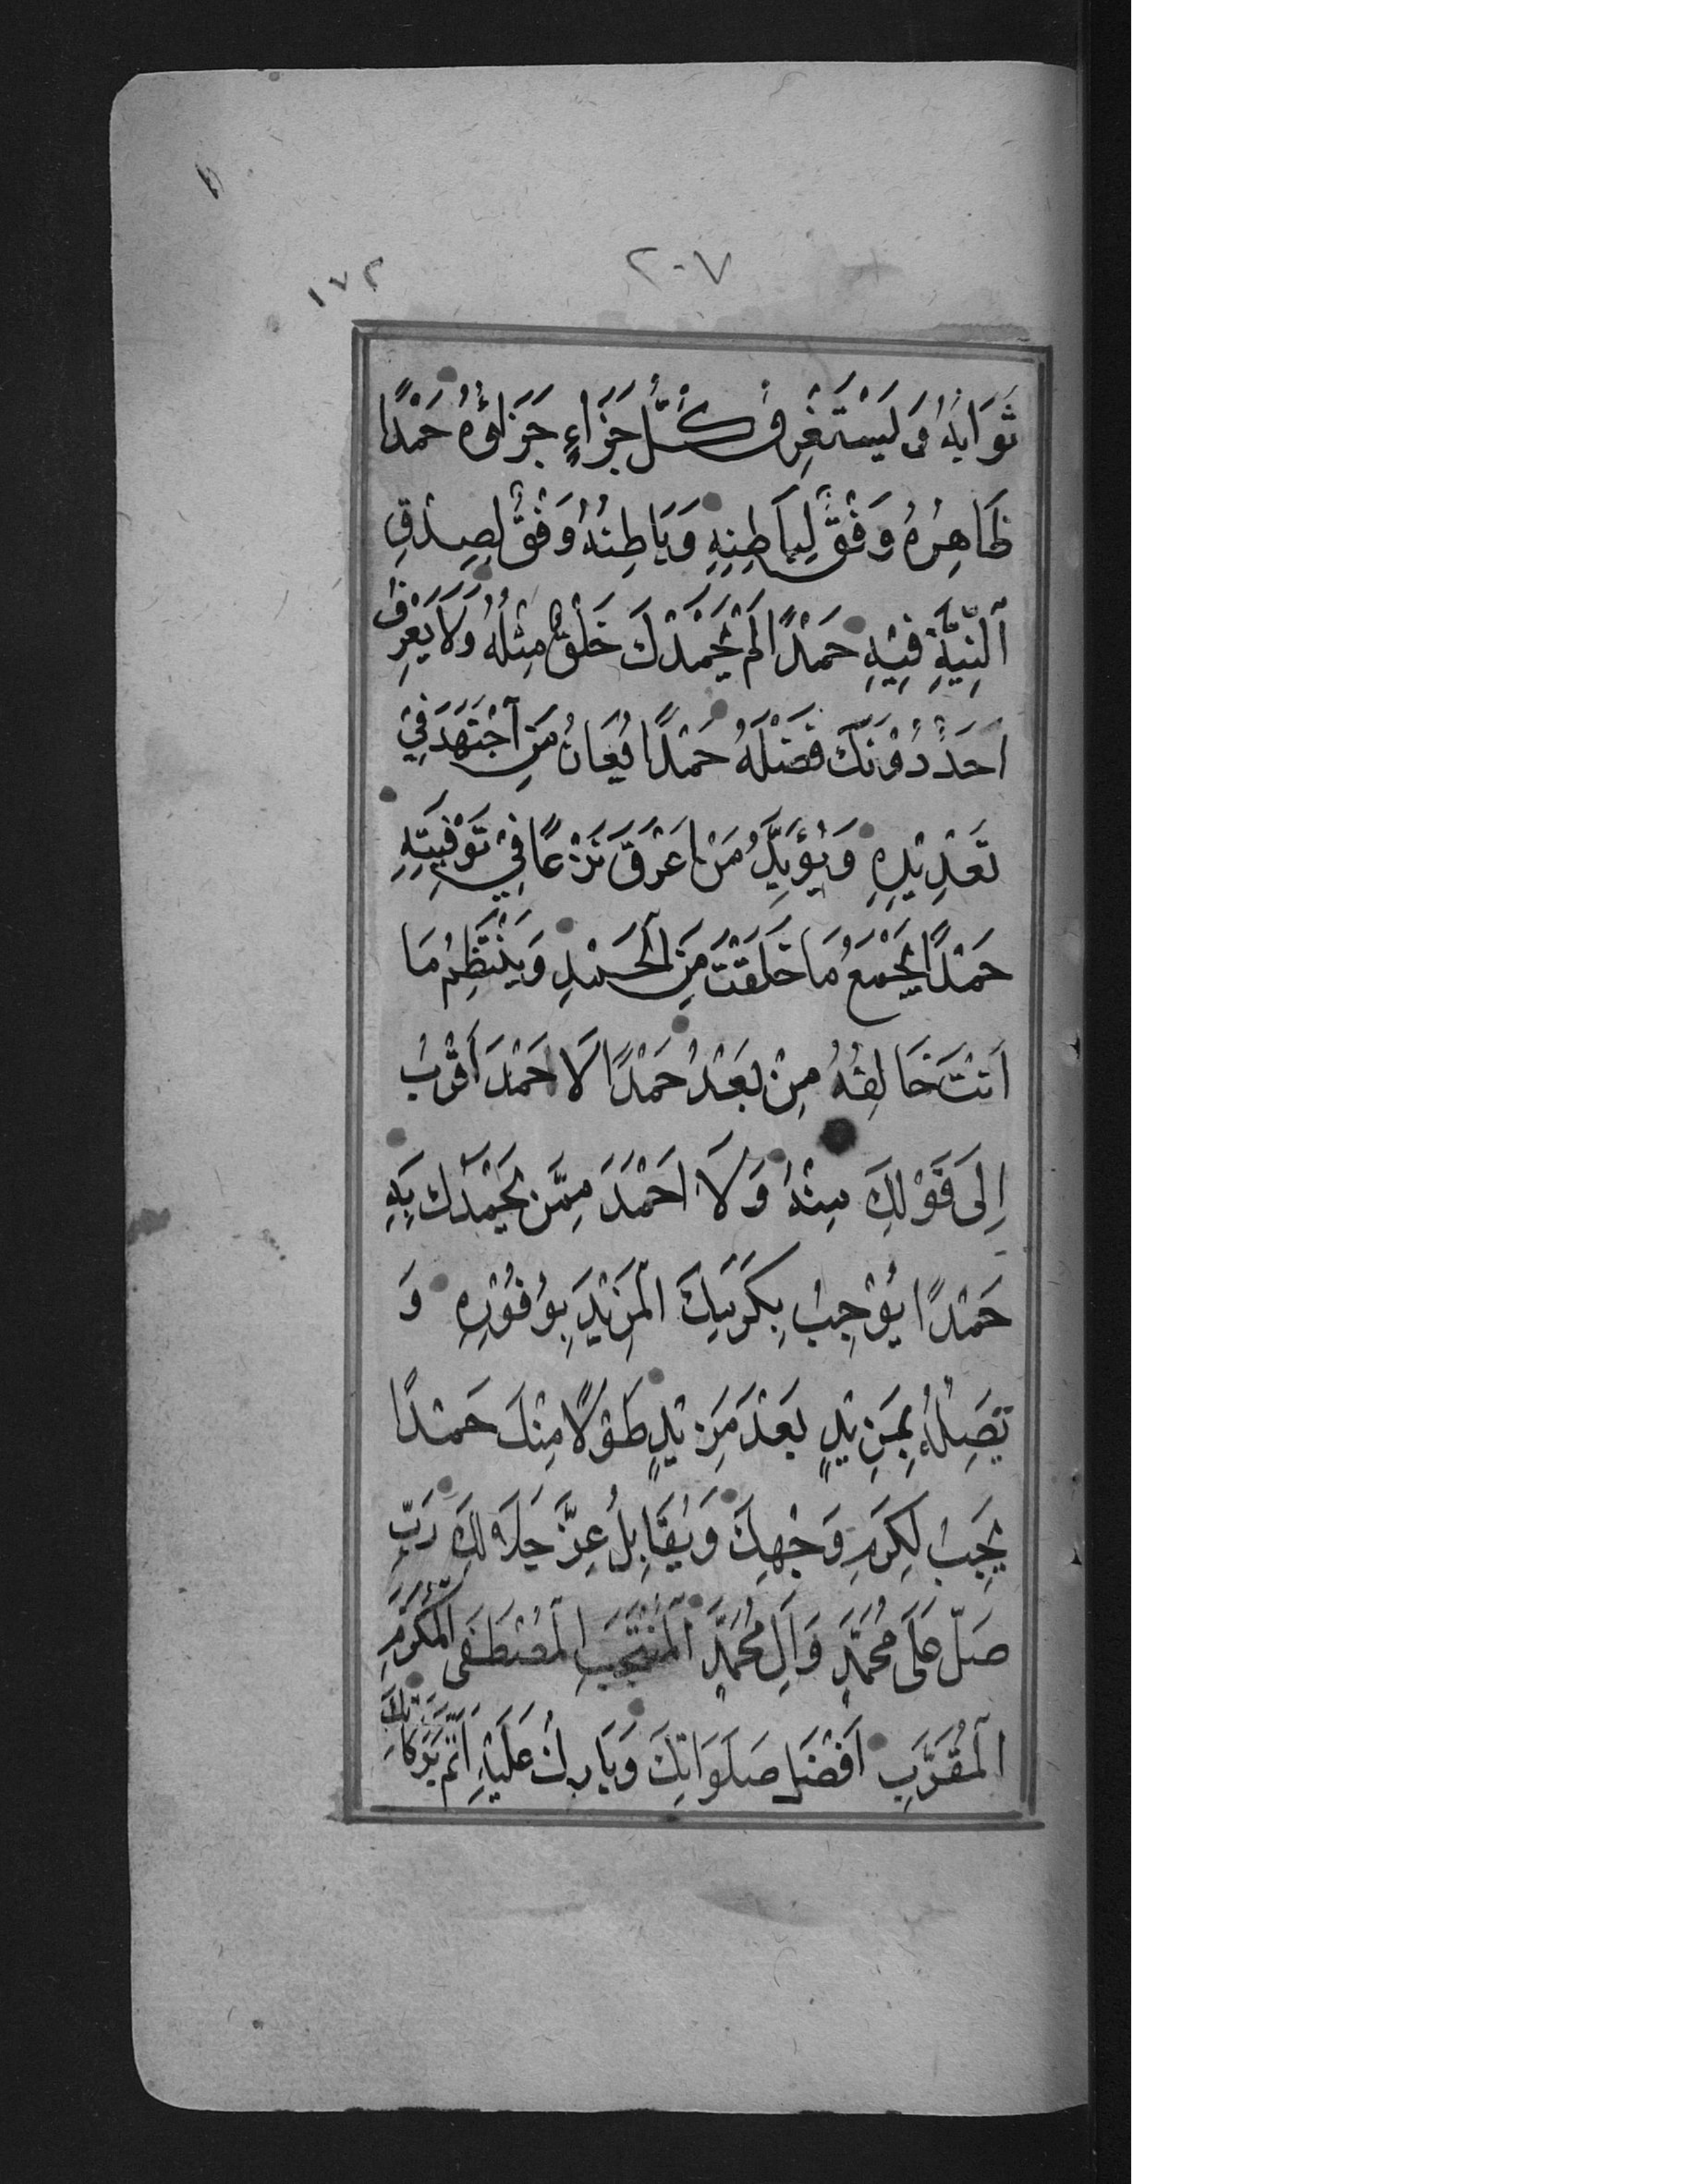 ٢٠٧
١٧٢
ثَوَابُهُ وَ يَسْتَغْرِقُ كُلَّ جَزَاءٍ جَزَاؤُهُ حَمْدًا
ظَاهِرُهُ وَفْقٌ لِبَاطِنِهِ وَبَاطِنُهُ وَفْقٌ لِصِدْقِ
النِّيَّةِ فِيْهِ حَمْدًا لَمْ يَحْمَدْكَ خَلْقٌ مِثْلَهُ وَلَا يَعْرِفُ
اَحَدٌ دُوْنَكَ فَضْلَهُ حَمْدًا يُعَانُ مَنِ اجْتَهَدَ فِيْ
تَعْدِيْدِهِ وَيُؤَيَّدُ مَنْ اَغْرَقَ نَزْعًا فِيْ تَوْفِيَتِهِ
حَمْدًا يَجْمَعُ مَا خَلَقْتَ مِنَ الْحَمْدِ وَيَنْتَظِمُ مَا
اَنْتَ خَالِقُهُ مِنْ بَعْدُ حَمْدًا لَا حَمْدَ اَقْرَبُ
اِلَى قَوْلِكَ مِنْهُ وَلَا اَحْمَدَ مِمَّنْ يَحْمَدُكَ بِهِ
حَمْدًا يُوْجِبُ بِكَرَمِكَ الْمَزِيْدَ بِوُفُوْرِهِ وَ
تَصِلُهُ بِمَزِيْدٍ بَعْدَ مَزِيْدٍ طَوْلًا مِنْكَ حَمْدًا
يَجِبُ لِكَرَمِ وَجْهِكَ وَيُقَابِلُ عِزَّ جَلَالِكَ رَبِّ
صَلِّ عَلَى مُحَمَّدٍ وَاٰلِ مُحَمَّدٍ الْمُنْتَجَبِ الْمُصْطَفَى الْمُكَرَّمِ
الْمُقَرَّبِ اَفْضَلَ صَلَوَاتِكَ وَبَارِكْ عَلَيْهِ اَتَمَّ بَرَكَاتِكَ